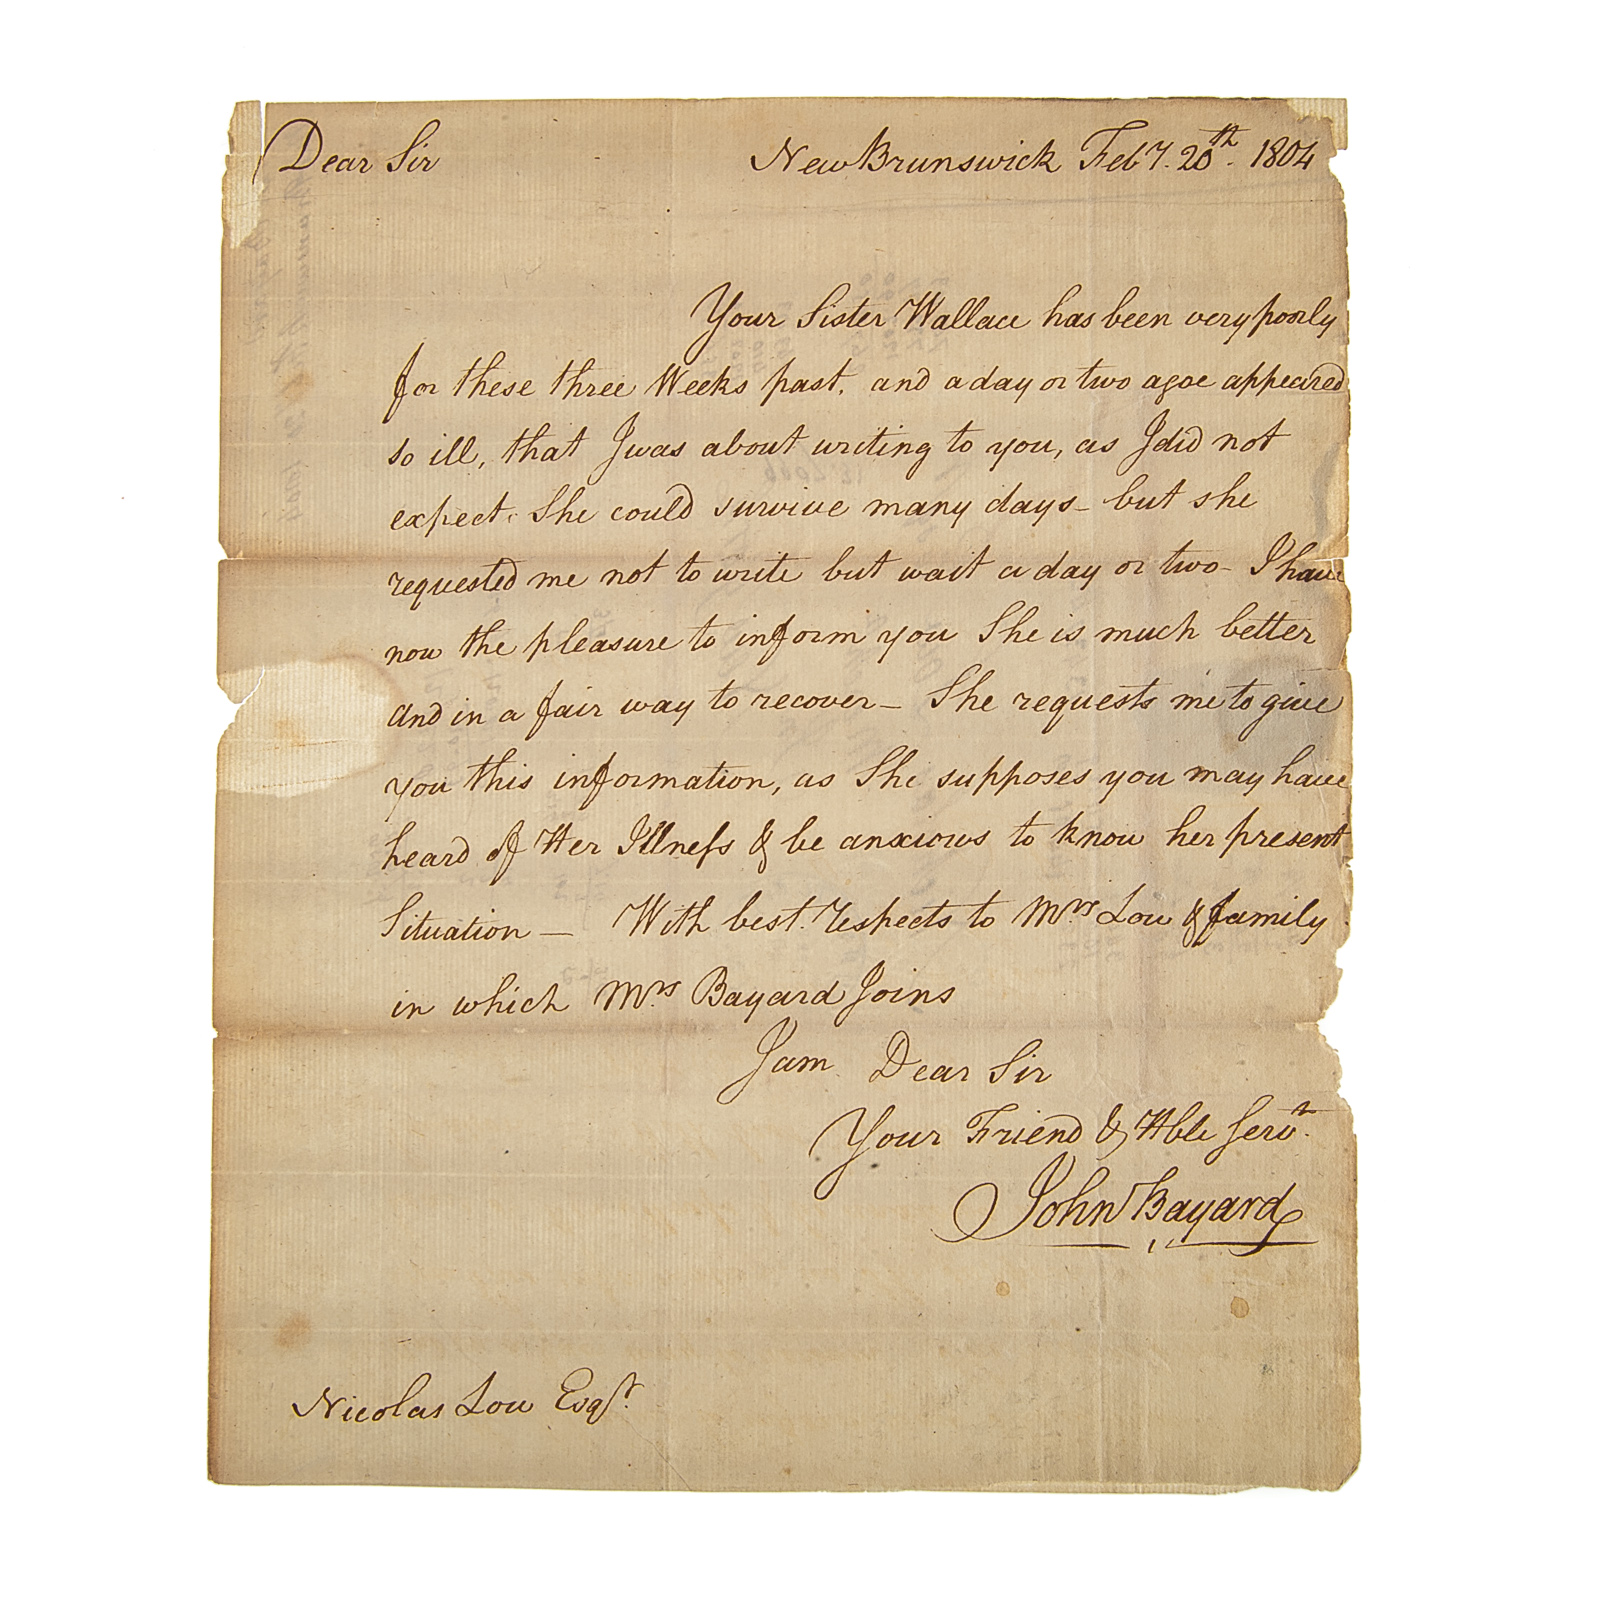 Dear Sir New Brunswick Feby. 20th. 1804
Your Sister Wallace has been very poorly
for these three Weeks past, and a day or two agoe appeared
so ill, that I was about writing to you, as I did not
expect She could survive many days - but she
requested me not to write but wait a day or two - I have
now the pleasure to inform you She is much better
and in a fair way to recover - She requests me to give
you this information, as She supposes you may have
heard of Her Illneſs & be anxious to know her present
Situation - With best respects to Mrs Low & family
in which Mrs Bayard Joins
I am Dear Sir
Your Friend & Hble Servt.
John Bayard
Nicolas Low Esqr.